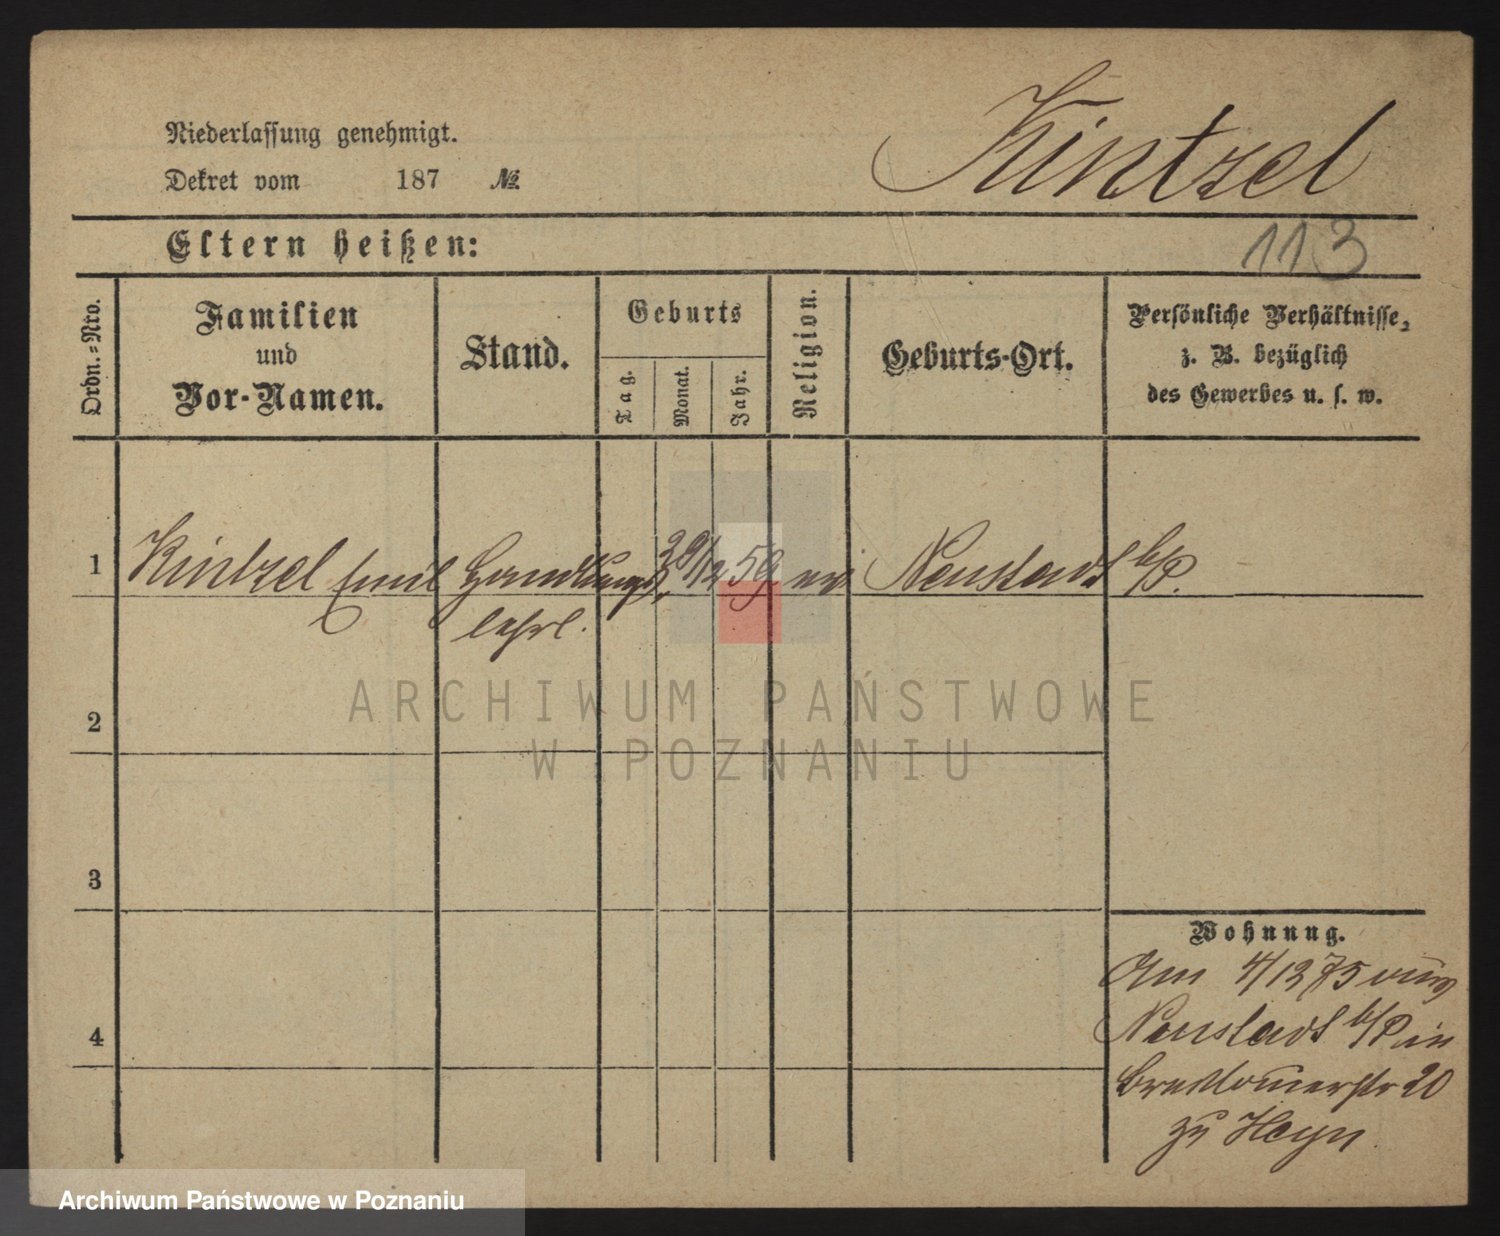 Kintzel
Niederlassung genehmigt.
Dekret vom 187 №
Eltern heißen:
113
Ordn.-Nro.
Familien
und
Vor-Namen.
Stand.
Geburts
Tag.
Monat.
Jahr.
Religion.
Geburts-Ort.
Persönliche Verhältnisse,
z. B. bezüglich
des Gewerbes u. s. w.
1 Kintzel Emil Handlungs 12 59 Neustadt b/P.
lehrl.
2
3
4
Wohnung.
Am 4/12 75 von
Neustadt b/P in
Breslauerstr 20
zu Heyn
ARCHIWUM PAŃSTWOWE
W POZNANIU
Archiwum Państwowe w Poznaniu